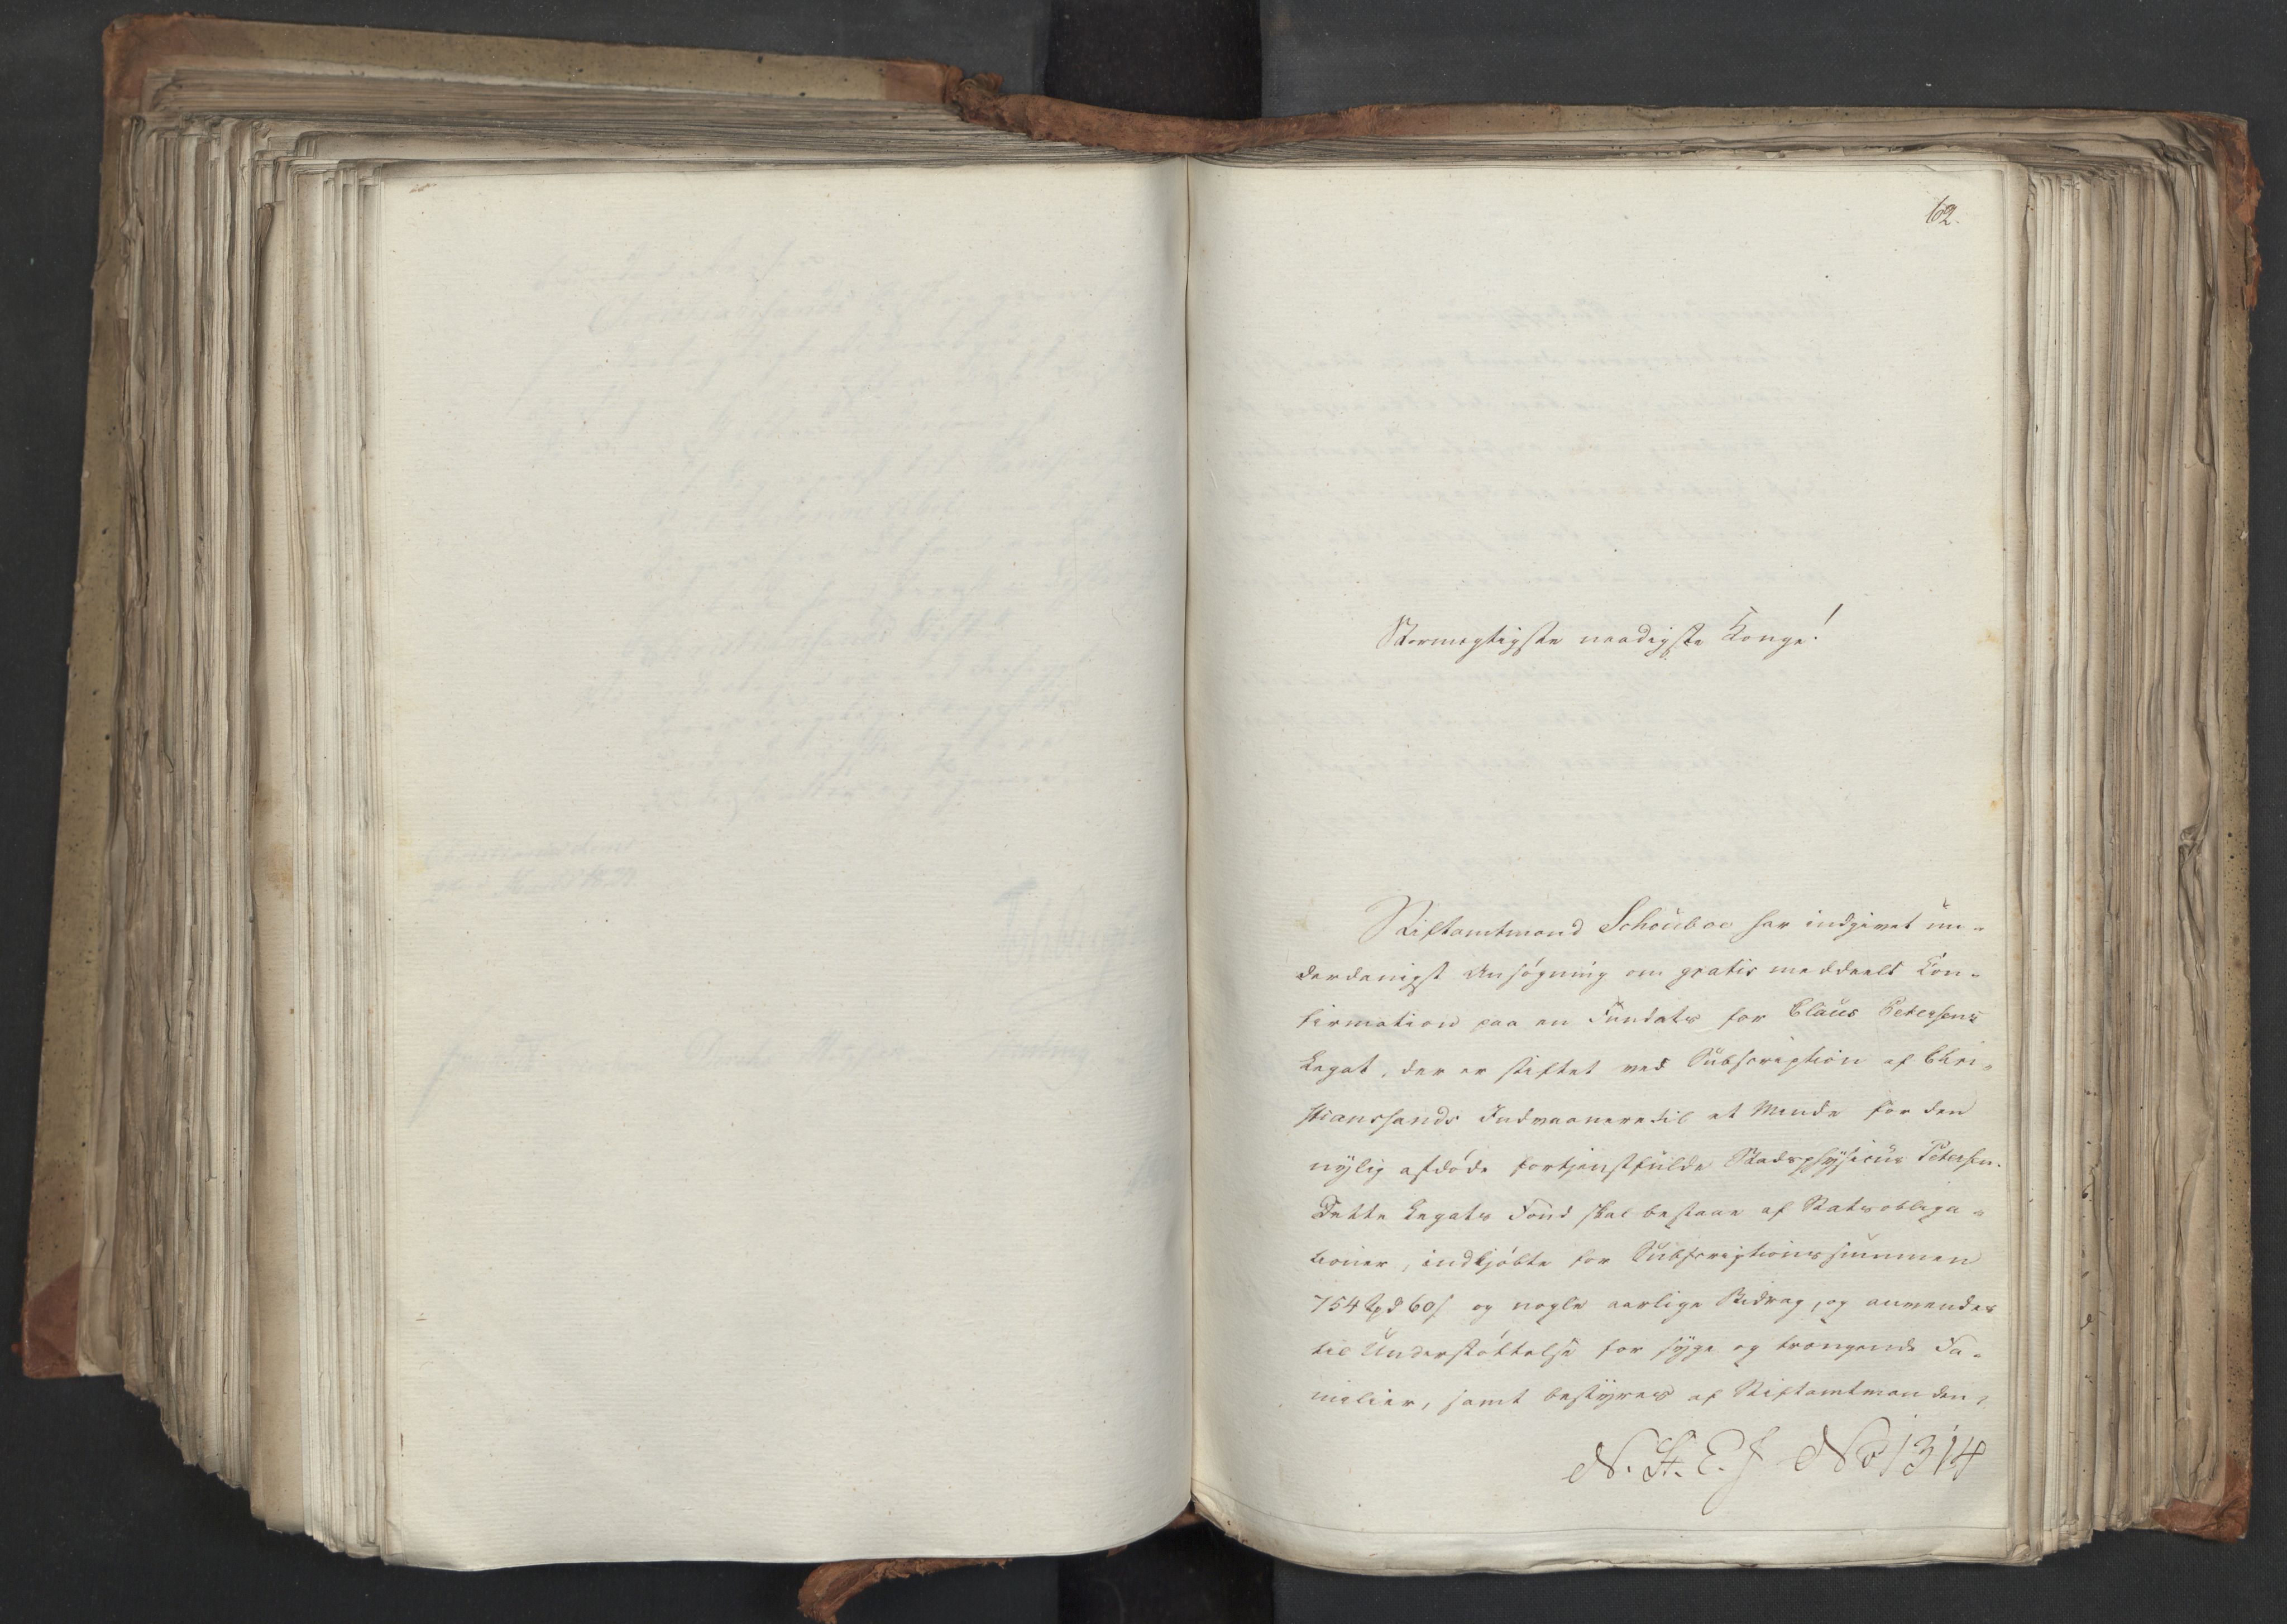 62.
Stormægtigste naadigste Konge!
Stiftamtmand Schouboe har indgivet un-
derdanigst Ansøgning om gratis meddeelt Con-
firmation paa en Fundats for Claus Petersens
Legat, der er stiftet ved Subscription af Chri-
stianssands Indvaanere til et Minde for den
nylig afdøde fortjenstfulde Stadsphysicus Petersen.
Dette Legats Fond skal bestaae af Statsobliga-
tioner, indkjøbte for Subscriptionssummen
754 Spd 60 s og nogle aarlige Bidrag, og anvendes
til Understøttelse for syge og trængende Fa-
milier, samt bestyres af Stiftamtmanden,
N. St. E. J No 1314